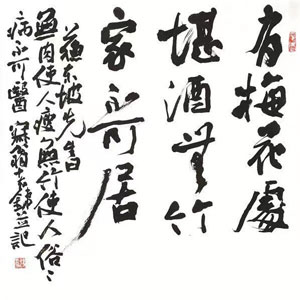 有梅花處
堪酒無竹
家不可居
蘇東坡先生
無肉使人瘦無竹使人俗俗
病不可醫